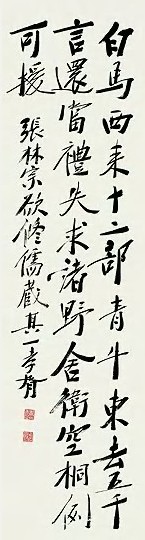 白馬西來十二部青牛東去五千
言還當禮失求諸野舍衛空桐例
可援　張林宗欲修儒藏其一孝胥